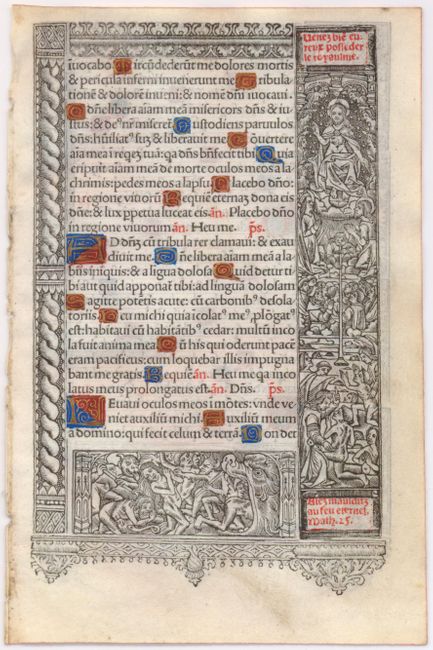 Venez bie eu
reux posseder
le royaulme.
īuocabo Circūdederūt me dolores mortis
& pericula inferni inuenerunt me Tribula
tionē & dolorē inueni: & nomē dn̄i inuocaui.
O dn̄e libera aīam meā misericors dn̄s & iu
stus: & deꝰ nr̄ miseret Custodiens paruulos
dn̄s: humiliatꝰ sū & liberauit me Conuertere
aīa mea ī requiē tuā: qa dn̄s bn̄fecit tibi Quia
eripuit aīam meā de morte oculos meos a la
chrimis: pedes meos a lapsu Placebo dn̄o:
in regione viuorū Requiē eternaz dona eis
dn̄e: & lux ppetua luceat eis an. Placebo dn̄o
in regione viuorum an. Heu me. ps.
AD Dn̄z cū tribularer clamaui: & exau
diuit me. Dn̄e libera aīam meā a la
biis iniquis: & a ligua dolosa Quid detur ti
bi aut quid apponat tibi: ad linguā dolosam
Sagitte potētis acute: cū carbonibꝰ desola
toriis. Heu michi quia īcolatꝰ meꝰ, plōgatꝰ
est: habitaui cū habitātibꝰ cedar: multū inco
la fuit anima mea Cū his qui oderunt pacē
eram pacificus: cum loquebar illis impugna
bant me gratis. Requiē an. Heu me qa inco
latus meus prolongatus est. an. Dn̄s. ps.
LEuaui oculos meos ī mōtes: vnde ve
niet auxiliū michi. Auxiliū meum
a domino: qui fecit celum & terrā. Non det
Allez mauditz
au feu eternel.
Math. 25.